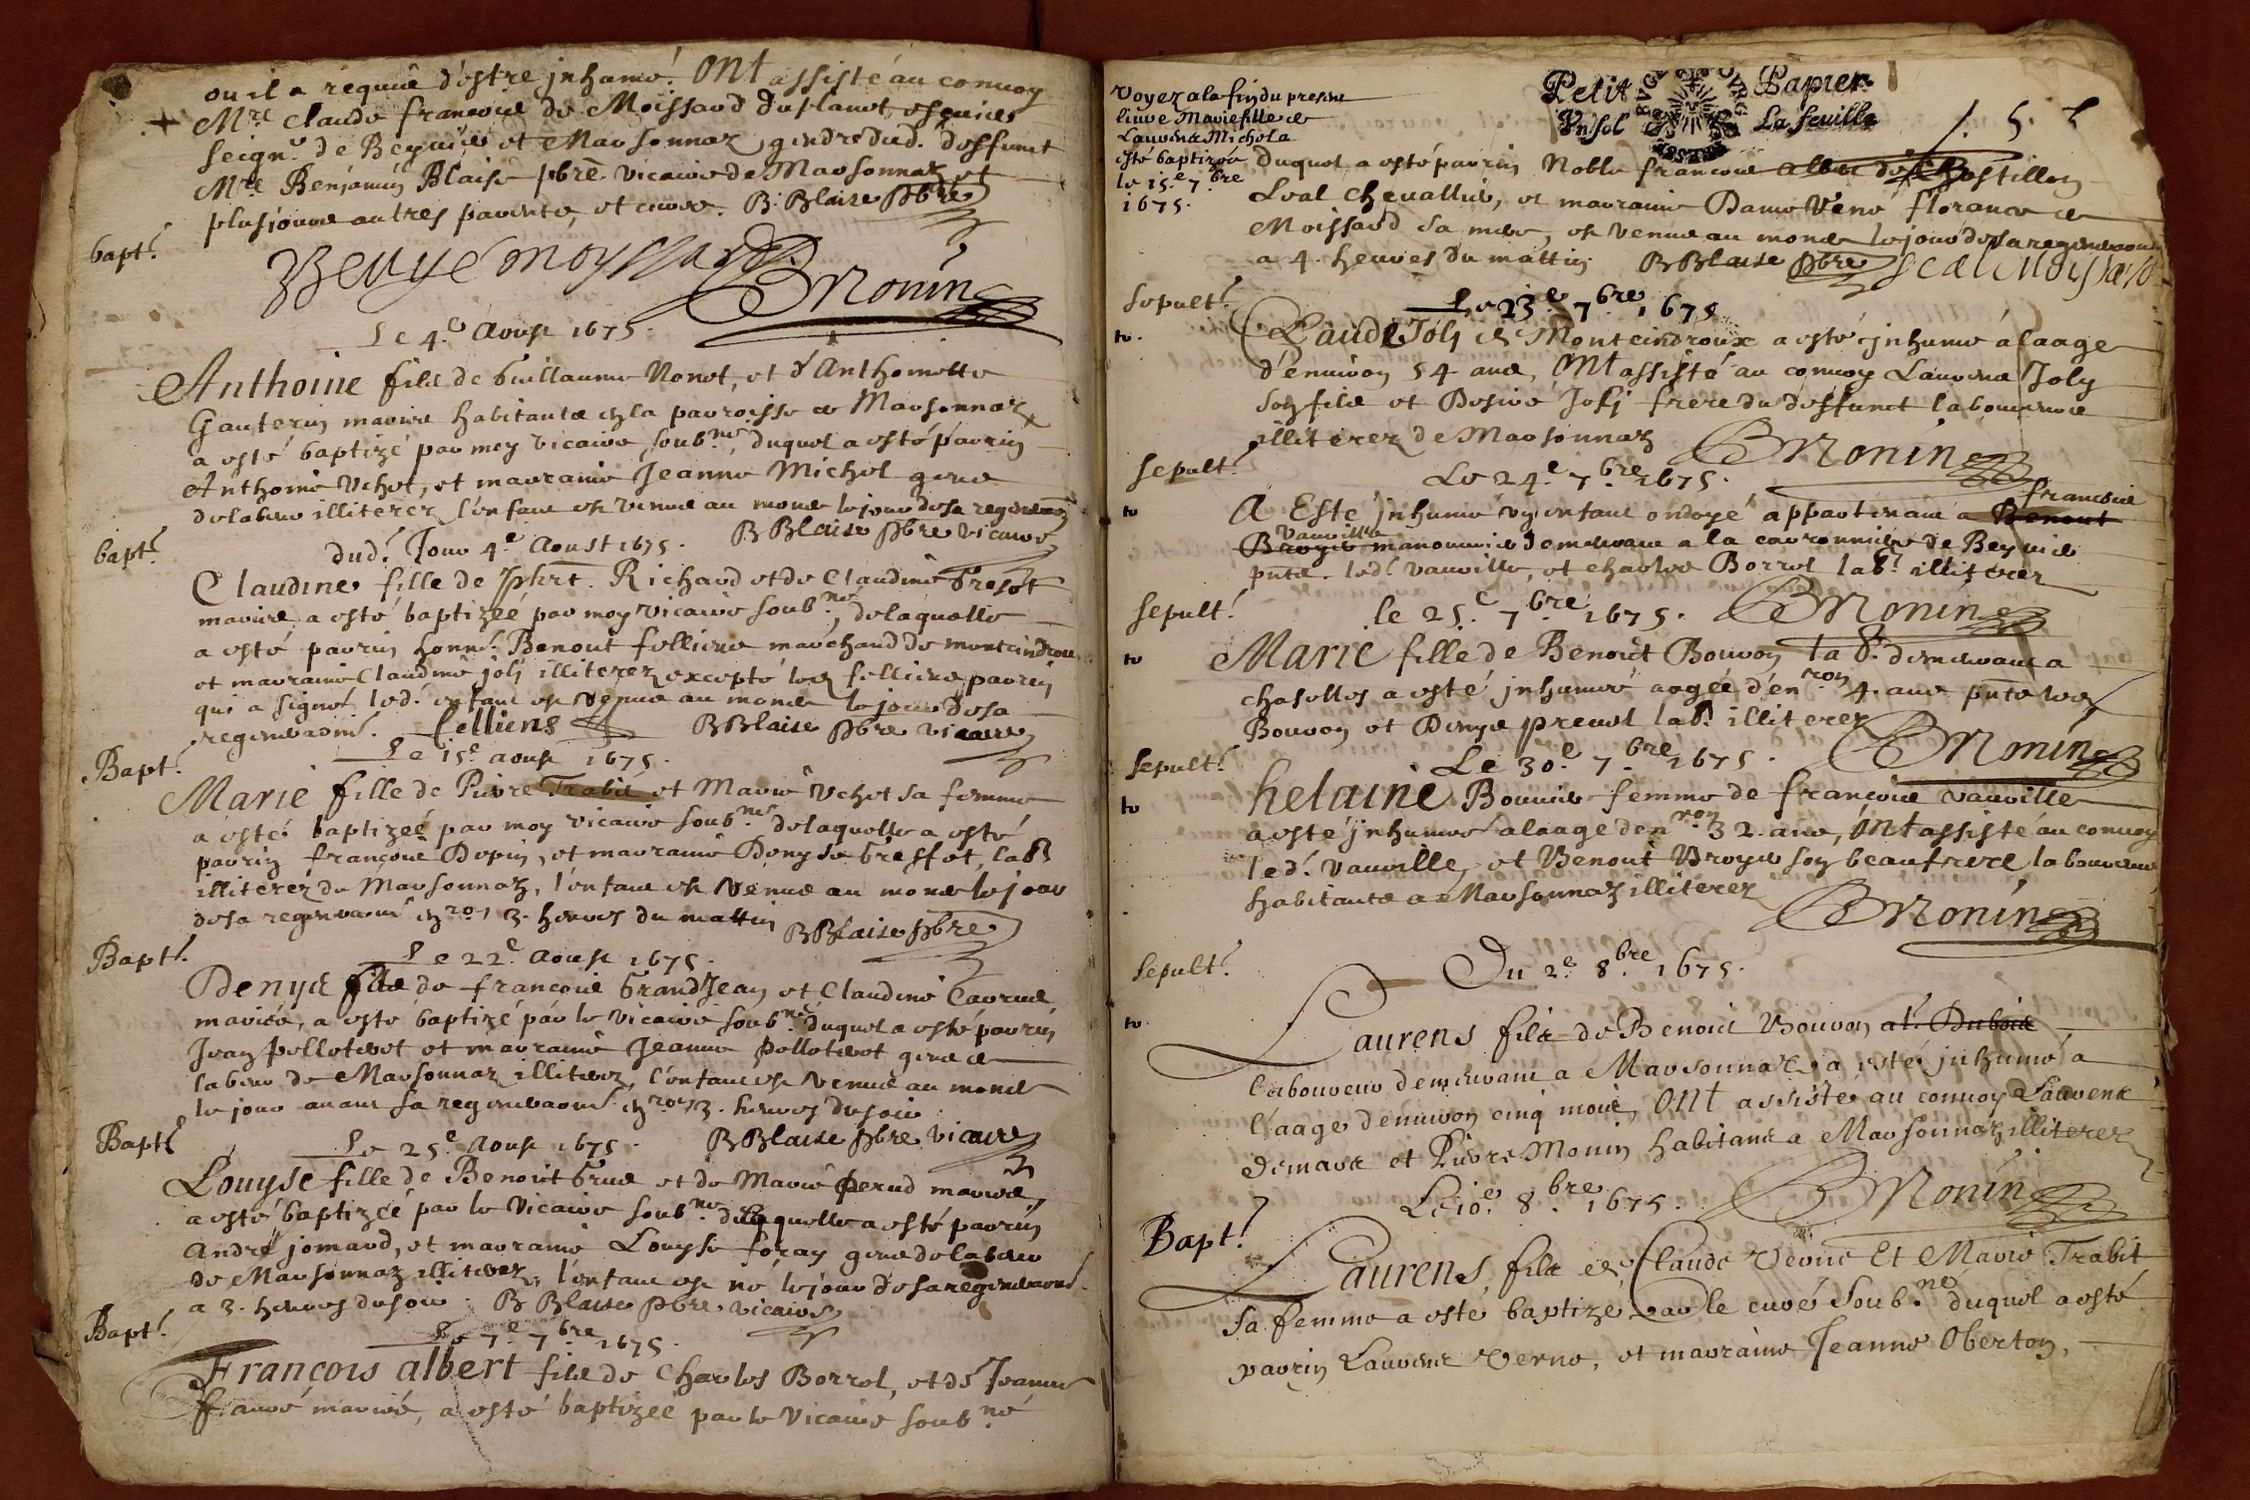 ou il a requuë d'estre jnhumé. Ont assisté au convoy
Mre Claude francois de Moissard du planot escuier
seignr de Beyuiere et Marsonnaz, gendre dud. deffunct
Mre Benjamin Blaise pbre vicaire de Marsonnaz et
plusieurs autres parents, et amis. B. Blaise pbre
BMonin
bapt.
Le 4e Aoust 1675.
Anthoine fils de Guillaume Nonet, et d'Anthoinette
Gauterin mariez habitants en la parroisse de Marsonnaz
a esté baptizé par moy vicaire soubné, duquel a esté parrin
Anthoine Uchet, et marraine Jeanne Michel gens
de labeur illiterez l'enfant est venu au monde le jour de sa regeneraon
B Blaise pbre vicaire
bapt.
dud. Jour 4e Aoust 1675.
Claudine fille de Phrt. Richard et de Claudine Gresset
mariez, a esté baptizeé par moy vicaire soubné, de laquelle
a esté parrin honn. Benoit felliens marchand de monteindroux
et marraine Claudine joly illiterez excepté led felliens parrin
qui a signé led. enfant est venue au monde le jour de sa
regeneraon. felliens B Blaise pbre vicaire
Bapt.
Le 15e aoust 1675.
Marie fille de Pierre Trabit et Marie Uchet sa femme
a esté baptizeé par moy vicaire soubné de laquelle a esté
parrin françois Depin, et marraine Denyse Gresset, lab.
illiterez de Marsonnaz, l'enfant est venue au monde le jour
de sa regeneraon enron 3. heures du mattin B Blaise pbre
Bapt.
Le 22e Aoust 1675.
Denys fils de francois GrandJean et Claudine Carrud
mariés, a esté baptizé par le vicaire soubné duquel a esté parrin
Jean pelleteret et marraine Jeanne pelleteret gens de
labeur de Marsonnaz illiterez, l'enfant est venu au monde
le jour avant sa regeneraon enron 3. heures du soir
B Blaise pbre vicaire
Bapt.
Le 25e Aoust 1675.
Louyse fille de Benoit Grud et de Marie Perud mariez,
a esté baptizeé par le vicaire soubné de laquelle a esté parrin
André jomard, et marraine Louyse foray gens de labeur
de Marsonnaz illiterez, l'enfant est né le jour de sa regeneraon
a 3. heures du soir. B Blaise pbre vicaire
Bapt.
Le 7e 7bre 1675.
François albert fils de Charles Borrel, et de Jeanne
favre mariés, a esté baptizeé par le vicaire soubné
Voyez a la fin du present
livre Marie fille de
Laurent Michela
esté baptizeé
le 15e 7bre
1675.
Petit Papier
Un sol La feuille
duquel a esté parrin Noble francois
Leal chevallier, et marraine Dame Rene florance de
Moissard sa mere, est venu au monde le jour de sa regeneraon
a 4. heures du mattin B Blaise pbre
Sepult.
Le 23e 7bre 1675
Claude Joly de Monteindroux a esté jnhumé à laage
d'environ 54 ans, Ont assisté au convoy Laurens Joly
son fils et Desiré Joly frere du deffunct laboureurs
illiterez de Marsonnaz BMonin
Sepult.
Le 24e 7bre 1675.
francois
A Esté jnhumé un enfant ondoyé appartenant a Benoit
Vauville
Broyer manouvrier demeurant a la carronniere de Beyvier
pnts. led. vauville, et charles Borrel lab. illiterez
Sepult.
le 25e 7bre 1675. BMonin
Marie fille de Benoit Bouvon lab. demeurant a
chaselles a esté jnhumeé aagée d'enron 4. ans pnts led
Bouvon et Denys prevel lab. illiterez
BMonin
Sepult.
Le 30e 7bre 1675.
helaine Bouvier femme de francois vauville
a esté jnhumeé a laage d'enron 32. ans, Ont assisté au convoy
led. vauville, et Benoit Broyer son beaufrere laboureurs
habitants a Marsonnaz illiterez
BMonin
Sepult.
Du 2e 8bre 1675.
Laurens fils de Benoit Bouvon al. Dubois
laboureur demeurant a Marsonnaz, a esté jnhumé a
l'aage d'environ cinq mois, Ont assisté au convoy Laurent
Demare et Pierre Monin habitants a Marsonnaz illiterez
Le 10e 8bre 1675. BMonin
Bapt.
Laurens fils de Claude Verne Et Marie Trabit
sa femme a esté baptizé par le curé soubné duquel a esté
parrin Laurens Verne, et marraine Jeanne Oberton,